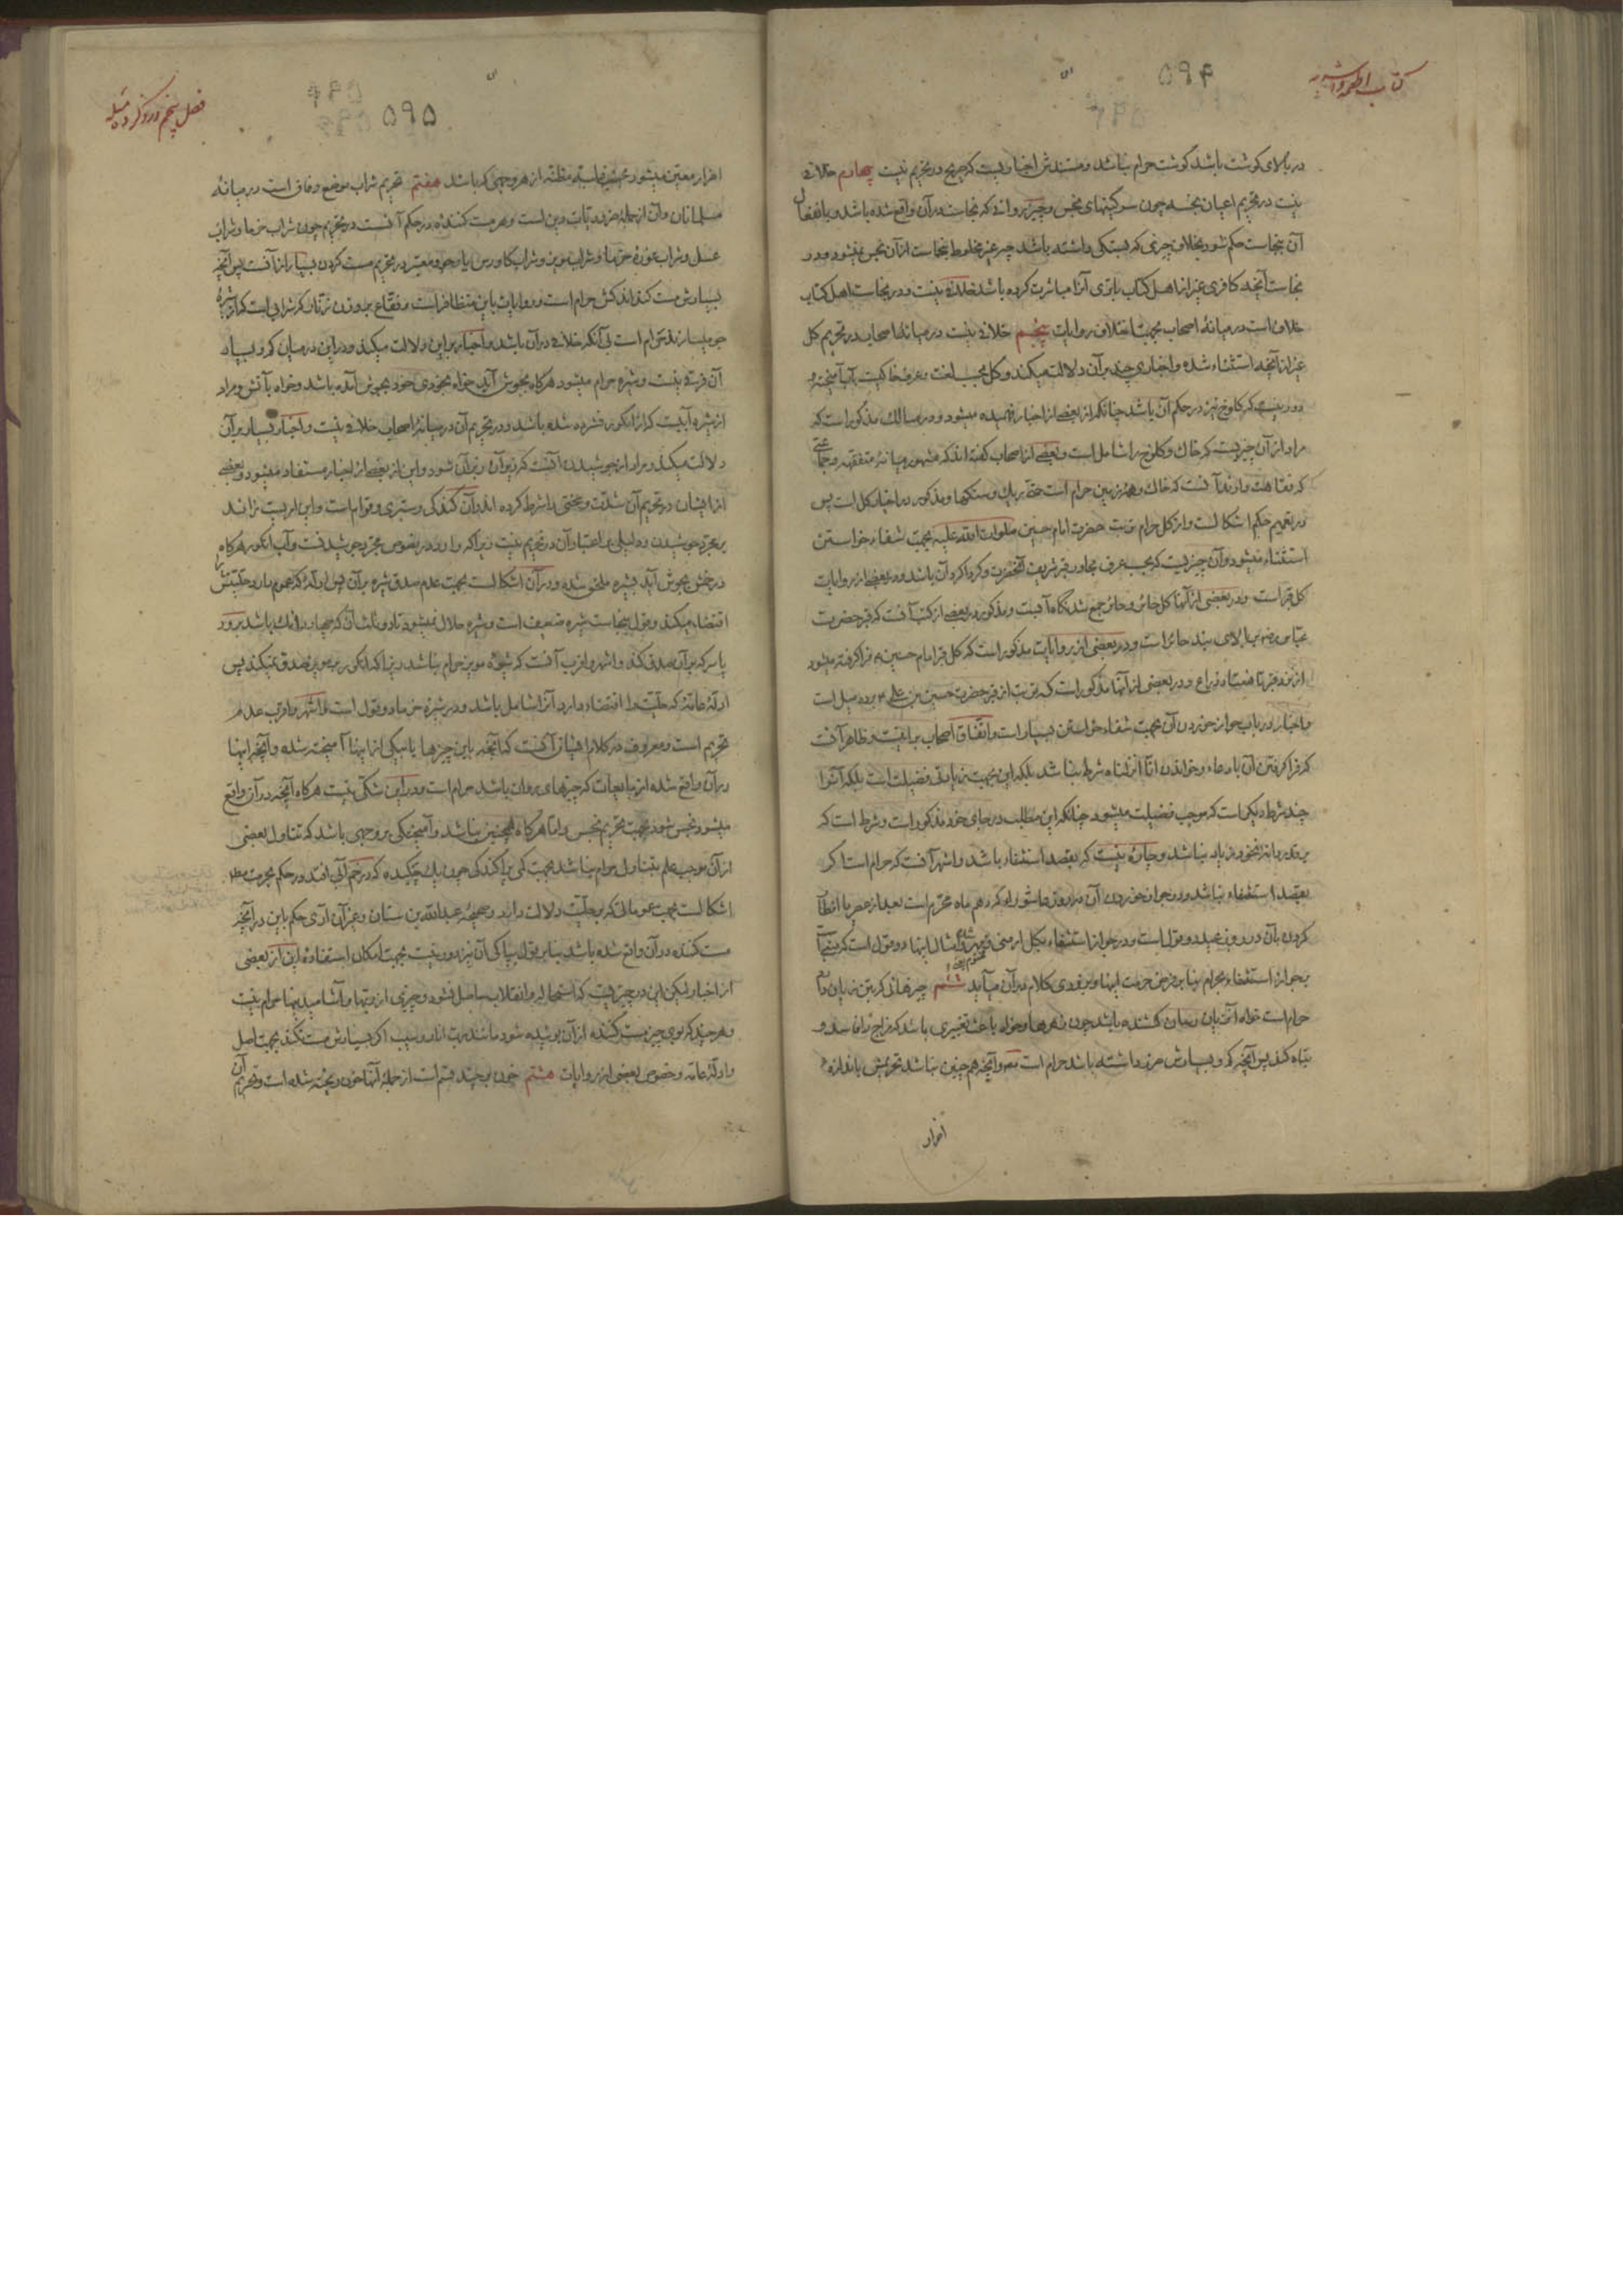 کتاب اطعمه واشربه
۵۹۴
در بالای گوشت باشد گوشت حرام نباشد ومستندش اخباریست که صریح در تحریم نیست چهارم خلافی
نیست در تحریم اعیان نجسه چون سرگینهای نجس وچیز روانی که نجاست در آن واقع شده باشد وبانفعال
آن بنجاست حکم شود بخلاف چیزی که بستگی داشته باشد چه غیر مخلوط بنجاست از آن نجس نمیشود ودر
نجاست آنچه کافری غیر از اهل کتاب بتری آنرا مباشرت کرده باشد خلافی نیست ودر نجاست اهل کتاب
خلاف است در میانهٔ اصحاب بجهت اختلاف روایات پنجم خلافی نیست در میانهٔ اصحاب در تحریم گل
غیر از آنچه استثناء شده واخباری چند بر آن دلالت میکند وگل بحسب لغت وعرف خاکیست بآب آمیخته و
دور نیست که کلوخ نیز در حکم آن باشد چنانکه از بعضی از اخبار فهمیده میشود ودر مسالک مذکور است که
مراد از آن چیزیست که خاک وکلوخ را شامل است وبعضی از اصحاب گفته اند که مشهور میانهٔ متفقهه وجماعتی
که فقاهت دارند آنست که خاک وهمه زمین حرام است حتی ریگ وسنگها ومذکور در اخبار گل است پس
در تعمیم حکم اشکالست واز گل حرام تربت حضرت امام حسین صلوات الله علیه بجهت شفاء خواستن
استثناء میشود وآن چیزیست که بحسب عرف مجاور قبر شریف آنحضرت وگرداگرد آن باشد ودر بعضی از روایات
گل قبر است ودر بعضی از آنها گل حائر وحائر جمع شدنگاه آبست ومذکور در بعضی از کتب آنست که قبر حضرت
عباس رض بالای سینه حائر است ودر بعضی از روایات مذکور است که گل قبر امام حسین ع فرا گرفته میشود
از نزد قبر تا هفتاد ذراع ودر بعضی از آنها مذکور است که تربت از قبر حضرت حسین بن علی ع بر ده میل است
واخبار در باب جواز خوردن آن بجهت شفاء خواستن بسیار است واتفاق اصحاب بر اینست وظاهر آنست
که فرا گرفتن آن با دعاء وخواندن انا انزلناه شرط نباشد بلکه این بجهت زیادتی فضیلت است بلکه آنرا
چند شرط دیگر است که موجب فضیلت میشود چنانکه این مطلب در جای خود مذکور است وشرط است که
بر قدر دانهٔ نخودی زیاد نباشد وچاره نیست که بقصد استشفاء باشد واشهر آنست که حرام است اگر
بقصد استشفاء نباشد ودر جواز خوردن آن در روز عاشوراء که دهم ماه محرم است بعد از عصر با افطار
کردن بآن در روز عید دو قول است ودر جواز استشفاء بگل ارمنی وامثال اینها دو قول است که مبتنی است
بر جواز استشفاء بحرام بنا بر فرض حرمت اینها وبزودی کلام در آن میآید ششم چیزهائی که بتن زیان دارد
حرام است خواه آن زیان رسان کشنده باشد چون زهرها وخواه باعث تغییری باشد که مزاج را فاسد و
تباه کند پس آنچه کم وبسیارش ضرر داشته باشد حرام است وآنچه هم چنین نباشد تحریمش باندازهٔ
اضرار
فصل پنجم در ذکر ده مسئله
۵۹۵
اضرار معتبر میشود غلبهٔ مظنه از هر وجهی که باشد هفتم تحریم شراب موضع وفاق است در میانهٔ
مسلمانان وآن از جملهٔ ضروریات دین است وهر مست کننده در حکم آنست در تحریم چون شراب خرما وشراب
عسل وشراب غورهٔ خرما وشراب مویز وشراب گاورس یا وجو ومعتبر در تحریم مست کردن بسیار از آنست پس آنچه
بسیارش مست کند اندکش حرام است وروایات باین متظافر است وفقاع بر وزن رمان که شرابی است که از آب
جو میسازند حرام است بی آنکه خلافی در آن باشد واخبار بر این دلالت میکند ودر این در میان کم وبسیار
آن فرقی نیست وشیره حرام میشود هرگاه بجوش آید خواه بخودی خود بجوش آمده باشد وخواه بآتش ومراد
از شیره آبیست که از انگور فشرده شده باشد ودر تحریم آن در میانهٔ اصحاب خلافی نیست واخبار بسیار بر آن
دلالت میکند ومراد از جوشیدن آنست که زیر آن زبر آن شود واین از بعضی از اخبار مستفاد میشود وبعضی
از ایشان در تحریم آن شدت وسختی را شرط کرده اند وآن گندگی وستبری وقوام است واین امریست زائد
بر مجرد جوشیدن ودلیلی بر اعتبار آن در تحریم نیست زیرا که وارد در نصوص مجرد جوشیدنست وآب انگور هرگاه
در حبش بجوش آید بشیره ملحق شده ودر آن اشکالست بجهت عدم صدق شیره بر آن پس ادله که عموم دارد حلیتش را
اقتضاء میکند وقول بنجاست شیره ضعیف است وشیره حلال میشود تا دو ثلث آن که چهار دانگ باشد برود
یا سرکه بر آن صدق کند واشهر واقرب آنست که شیرهٔ مویز حرام نباشد زیرا که انگور بر مویز صدق نمیکند پس
ادلهٔ عامه که حلیت را اقتضاء دارد آنرا شامل باشد ودر شیرهٔ خرما دو قول است واشهر واقرب عدم
تحریم است ومعروف در کلام ایشان آنست که آنچه باین چیزها یا بیکی از اینها آمیخته شده وآنچه اینها
در آن واقع شده از مایعات که چیزهای روان باشد حرام است ودر این شکی نیست هرگاه آنچه در آن واقع
میشود نجس شود بجهت تحریم نجس واما هرگاه همچنین نباشد وآمیختگی بر وجهی باشد که تناول بعضی
از آن موجب علم بتناول حرام نباشد بجهت کمی پراکندگی چون یک چکیده که در خم آبی افتد در حکم بحرمت
اشکالست بجهت عموماتی که بر حلیت دلالت دارد وصحیحهٔ عبدالله بن سنان وغیر آن آری حکم باین در آنچه
مست کننده در آن واقع شده باشد بنا بر قول بپاکی آن نیز دور نیست بجهت امکان استفادهٔ این از بعضی
از اخبار لیکن این در چیزیست که استحاله وانقلاب حاصل نشود وچیزی از رُبها وآشامیدنیها حرام نیست
وهر چند که بوی چیز مست کننده از آن بوئیده شود مانند رب انار وسیب اگر بسیارش مست نکند بجهت اصل
وادلهٔ عامه وخصوص بعضی از روایات هشتم خون بر چند قسم است از جملهٔ آنها خون ریخته شده است وتحریم آن